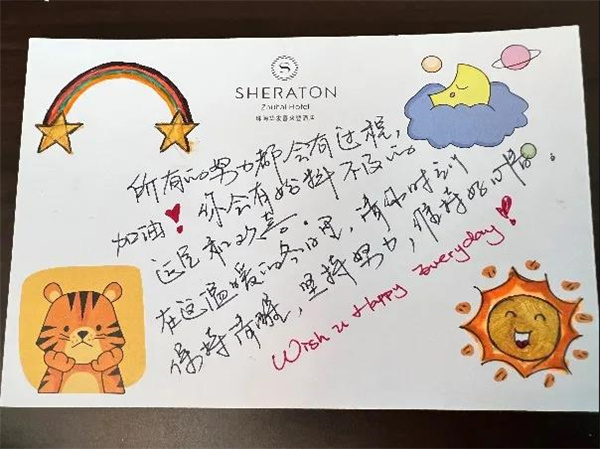 S
SHERATON
Zhuhai Hotel
珠海华发喜来登酒店
所有的努力都会有过程，
加油！你会有始料不及的
运气和欢喜。
在这温暖的冬日里，请你时刻
保持清醒，坚持努力，维持好心情。
Wish u Happy Everyday！